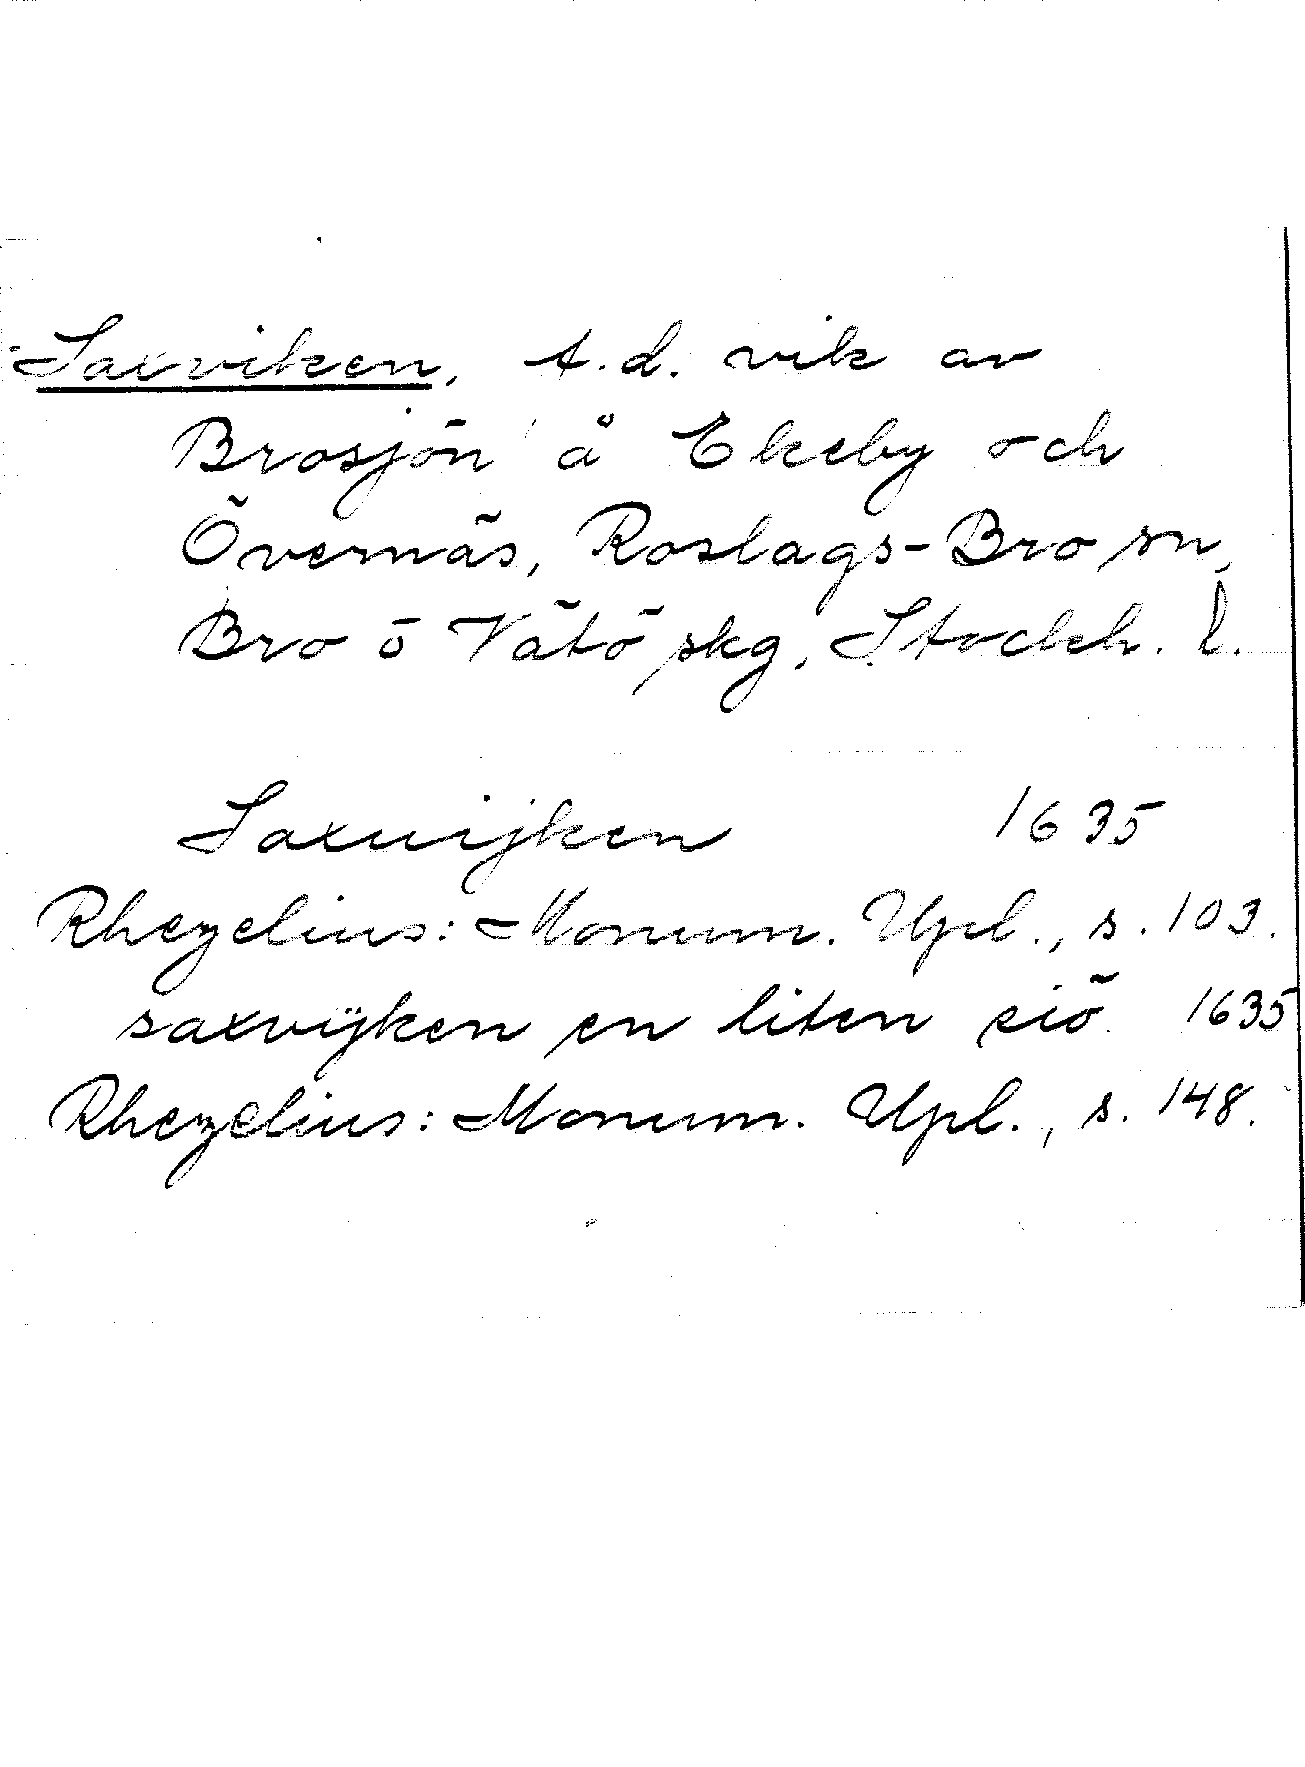 Saxviken, t.d. vik av
Brosjön å Ekeby och
Övernäs, Roslags-Bro sn,
Bro o Vätö skg, Stockh. l.
Saxuijken 1635
Rhezelius: Monum. Upl., s. 103.
saxvijken en liten siö 1635
Rhezelius: Monum. Upl., s. 148.